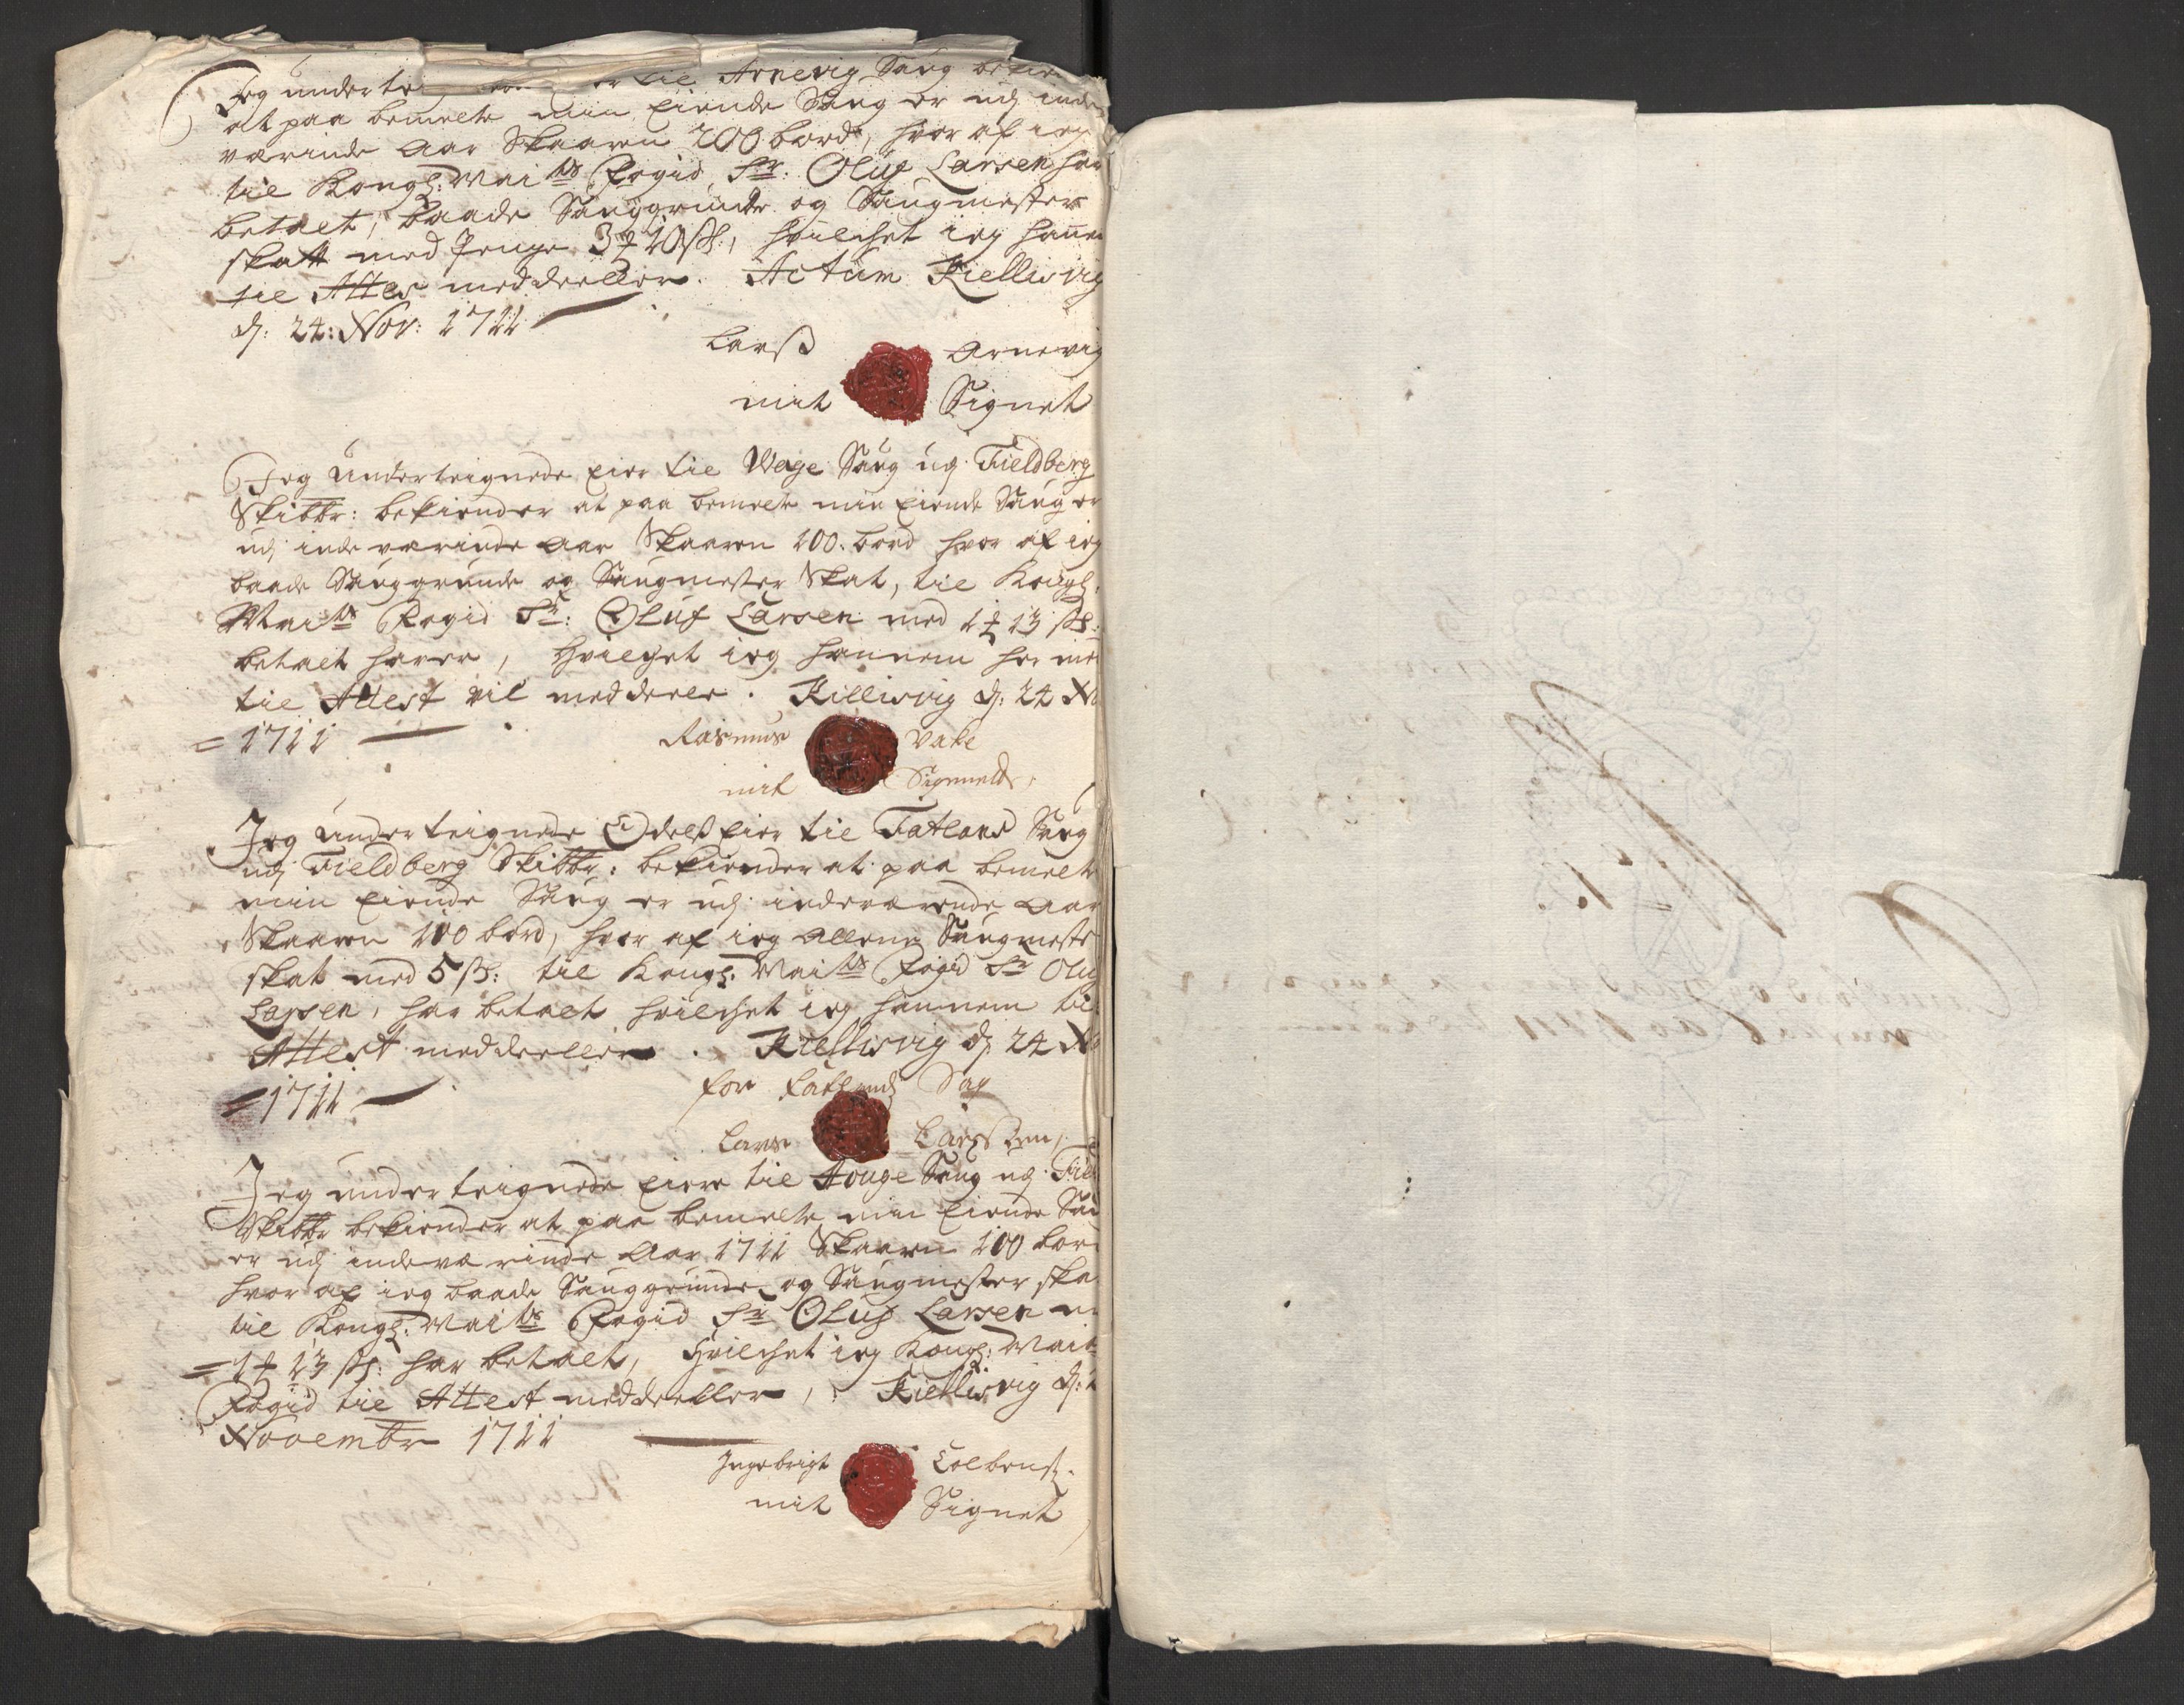 Jeg undertei eier til Arnevig Saug bekien
at paa bemelte min Eiende Saug er udj inde
værinde Aar Skaaren 200 bord, hvor af ieg
til Kongl: Maits Fogid Sr: Oluf Larsen har
betalt, baade Sauggrunde og Saugmester
skatt med Penge 3 20 ß:, hvilchet ieg hannem
til Attes meddeeller. Actum Kiellisvig
d: 24: Nov: 1711
Larß Arnevig
mit Signet
Jeg underteignede Eier til Wage Saug udj Fieldberg
Skibbr: bekiender at paa bemelte min Eiende Saug er
udj inde værinde Aar Skaaren 100. bord hvor af ieg
baade Sauggrunde og Saugmester Skat, til Kongl:
Maits Fogid Sr: Oluf Larsen med 1 13 ß:
betalt haver, Hvilchet ieg hannem her med
til Attest vil meddeele. Killisvig d: 24 No
= 1711
Rasmus Vake
mit Signneld
Jeg underteignede Odelß Eier til Fatland Saug
udj Fieldberg Skibbr: bekiender at paa bemelte
min Eiende Saug er udj indeværende Aar
Skaaren 100 bord, hvor af ieg allene Saugmester
skat med 5 ß: til Kongl: Maits Fogid Sr Oluf
Larsen, har betalt hvilchet ieg hannem til
Attest meddeeller. Kiellisvig dj 24 No
= 1711
for Fatlands Sag
Lars Larßen,
Jeg underteignede Eiere til Houge Saug udj Field
Skibbr bekiender at paa bemelte min Eiende Saug
er udj indeværinde Aar 1711 Skaaren 100 bord
hvor af ieg baade Sauggrunde og Saugmester ska
til Kongl: Maits Fogid Sr Oluf Larsen m
= 1 13 ß: har betalt, Hvilchet ieg Kongl: Maits
Fogid til Attest meddeeller, Kiellisvig d: 2
Novembr 1711
Ingebrigt Colbenß.
mit Signet